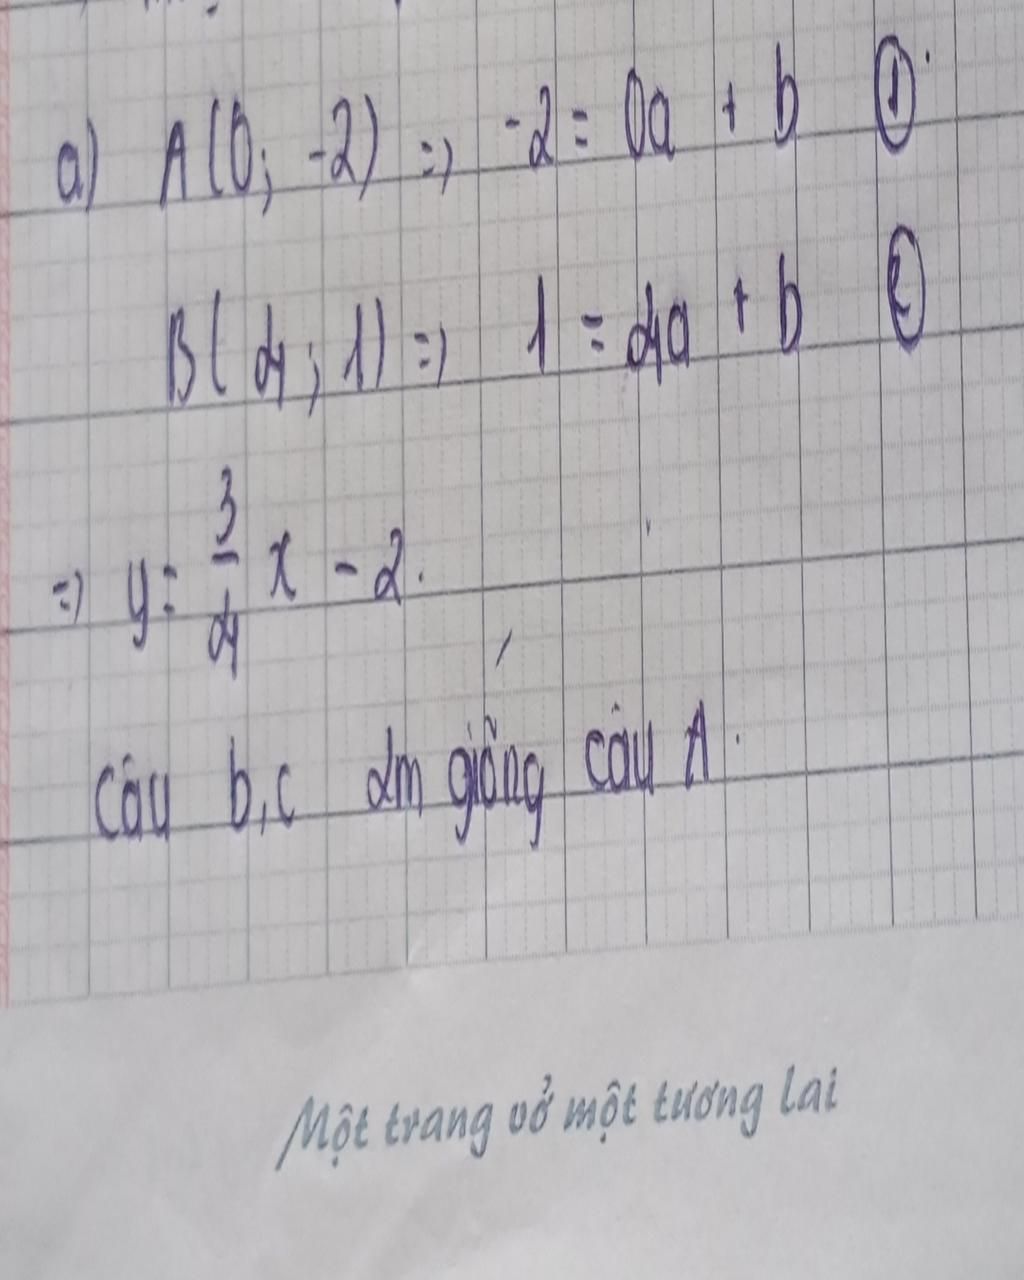 a) A(0; -2) => -2 = 0a + b ①
B(4; 1) => 1 = 4a + b ②
=> y = 3/4 x - 2.
câu b,c giống câu A.
Một trang vở một tương lai